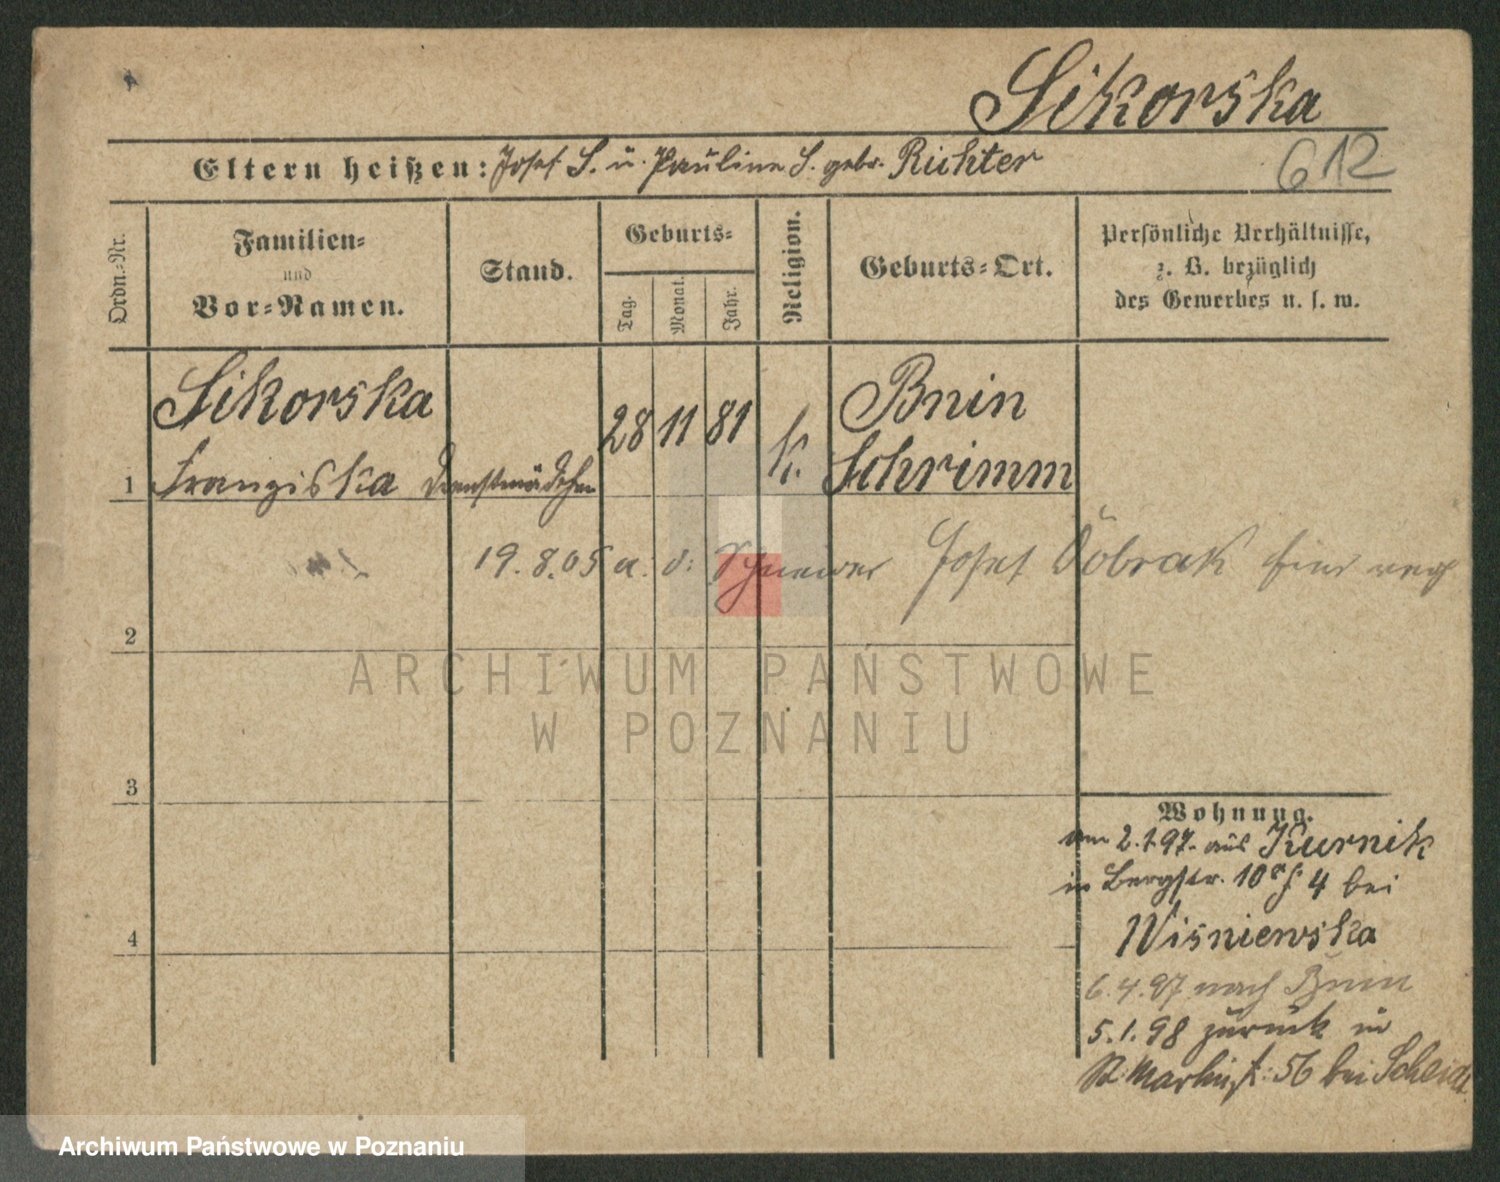 Sikorska
Eltern heißen: Josef S. u. Pauline S. gebr. Richter
612
Ordn.-Nr.
Familien-
und
Vor-Namen.
Stand.
Geburts-
Tag.
Monat.
Jahr.
Religion.
Geburts-Ort.
Persönliche Verhältnisse,
z. B. bezüglich
des Gewerbes u. s. w.
Sikorska 28 11 81 k. Bnin
1 Franziska Dienstmädchen Schrimm
19.8.05 a. d. Schneider Josef Dobrak hier
2
ARCHIWUM PAŃSTWOWE
W POZNANIU
3
Wohnung.
am 2.1.97. aus Kurnik
in Bergstr. 10 4 bei
Wisniewska
4
6.4.97 nach Bnin
5.1.98 zurück in
St. Martinst. 56 bei
Archiwum Państwowe w Poznaniu